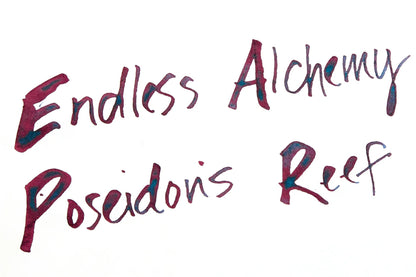 Endless Alchemy
Poseidon's Reef